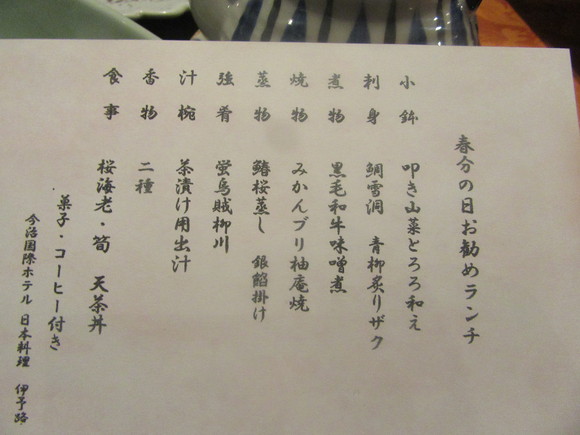 春分の日お勧めランチ
小鉢 叩き山菜とろろ和え
刺身 鯛雪洞 青柳炙りザク
煮物 黒毛和牛味噌煮
焼物 みかんブリ柚庵焼
蒸物 鰆桜蒸し 銀餡掛け
強肴 蛍烏賊柳川
汁椀 茶漬け用出汁
香物 二種
食事 桜海老・筍 天茶丼
菓子・コーヒー付き
今治国際ホテル 日本料理 伊予路